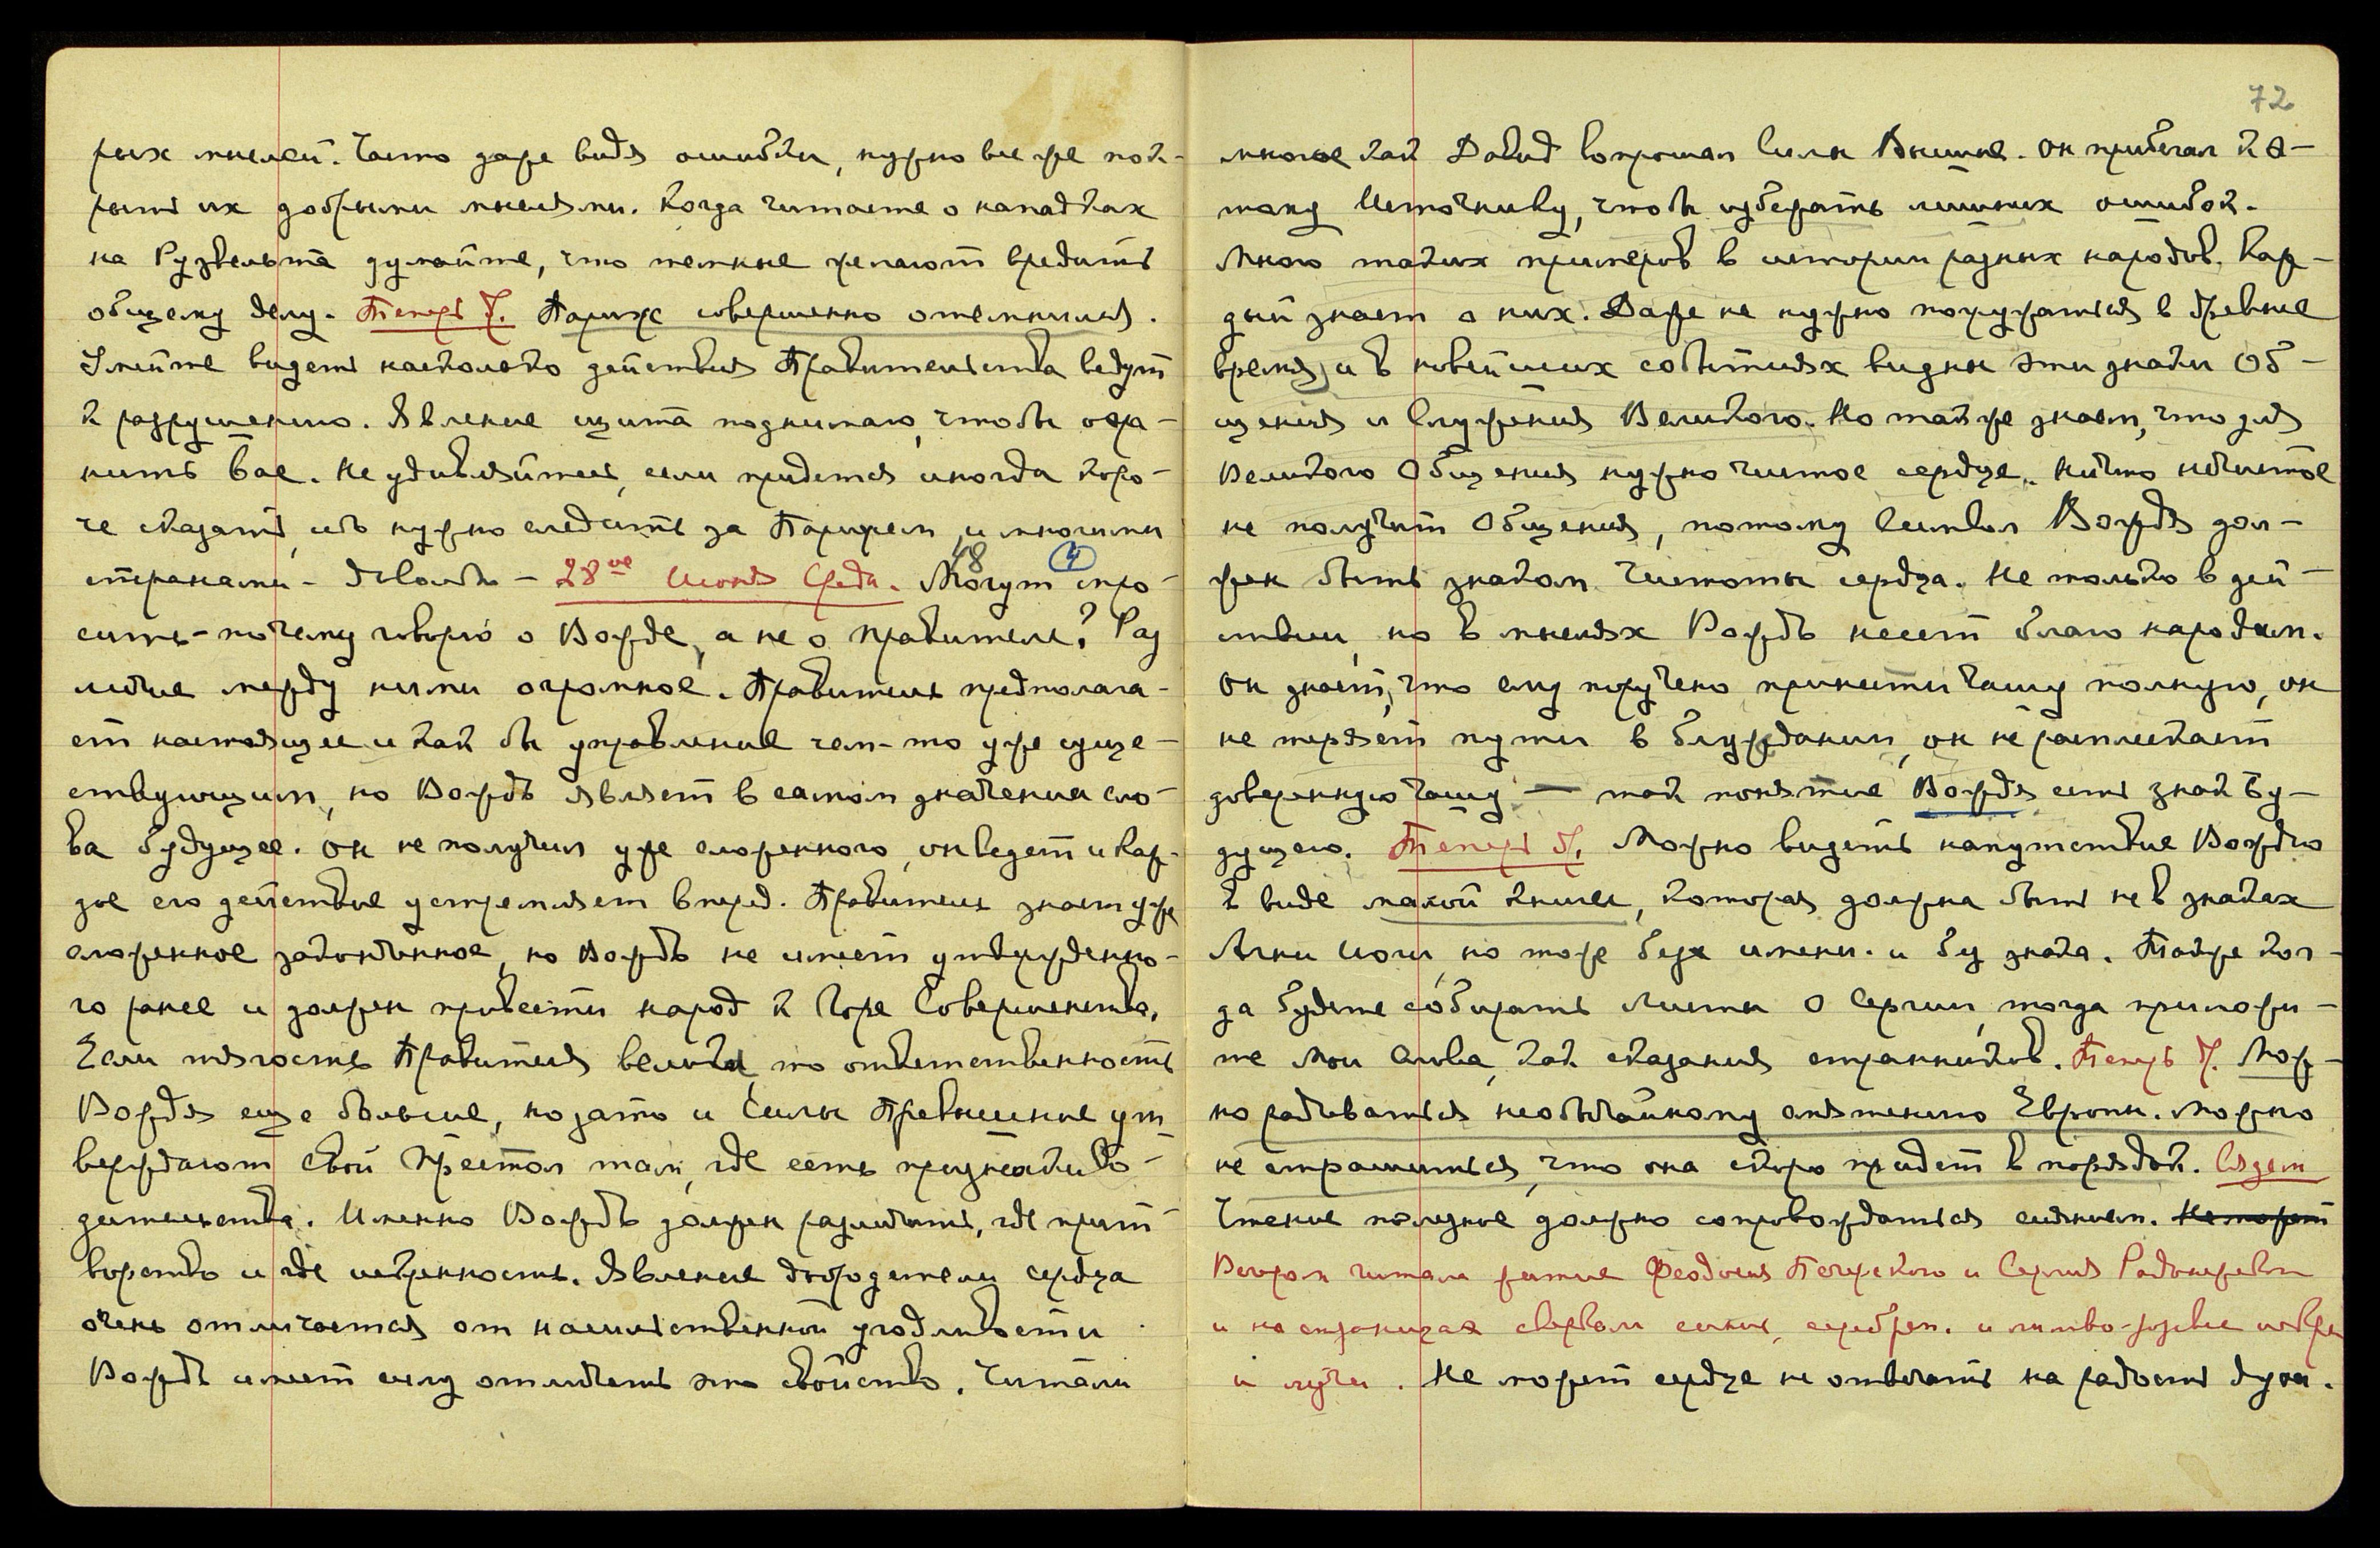 рых мыслей. Часто даже видя ошибки, нужно все же пок-
рыть их добрыми мыслями. Когда читаете о нападках
на Рузвельта думайте, что темные желают вредить
общему делу. Теперь У. Париж совершенно отемнился.
Умейте видеть насколько действия Правительства ведут
к разрушению. Явление щита поднимаю, чтобы охра-
нить вас. Не удивляйтесь, если придется иногда коро-
че сказать, ибо нужно следить за Парижем и многими
странами – Довольно – 28ое Июня Среда. Могут спро-
48 4
сить – почему говорю о Вожде, а не о правителе? Раз
личие между ними огромное. Правитель предполага-
ет настоящее и как бы управление чем-то уже суще-
ствующим, но Вождь являет в самом значении сло-
ва будущее. Он не получил уже сложенного, он ведет и каж-
дое его действие устремляет вперед. Правитель знает уже
сложенное законченное, но Вождь не имеет утвержденно-
го ранее и должен привести народ к Горе Совершенства.
Если тягость Правителя велика, то ответственность
Вождя еще больше, но зато и Силы Превышние ут
верждают свой Престол там, где есть признаки во-
дительства. Именно Вождь должен различать, где прит
ворство и где искренность. Явление добродетели сердца
очень отличается от насильственной угодливости.
Вождь имеет силу отличать это свойство. Читали
72
многое как Давид вопрошал Силы Вышние. Он прибегал к э-
тому Источнику, чтобы избежать лишних ошибок.
Много таких примеров в истории разных народов. Каж-
дый знает о них. Даже не нужно погружаться в древние
времена, и в новейших событиях видны эти знаки Об-
щения и Служения Великого. Но также знаем, что для
Великого Общения нужно чистое сердце. Ничто нечистое
не получит Общения, потому Символ Вождя дол-
жен быть знаком Чистоты сердца. Не только в дей-
ствии, но в мыслях Вождь несет благо народам.
Он знает, что ему поручено принести чашу полную, он
не теряет пути в блуждании, он не расплескает
доверенную чашу — так понятие Вождя есть знак Бу-
дущего. Теперь У. Можно видеть напутствие Вождю
в виде малой книги, которая должна быть не в знаках
Агни Йоги, но тоже без имени. и без знака. Также ког-
да будете собирать Листы о Сергии, тогда приложи-
те Мои Слова, как сказания странников. Теперь У. Мож-
но радоваться необычайному смятению Европы. Можно
не страшиться, что она скоро придет в порядок.
Чтение полезное должно сопровождаться сиянием. Не может
Вечером читала житие Феодосия Печерского и Сергия Радонежского
и на страницах сверкали синие, серебрян. и лилово-розовые искры
и лучи. Не может сердце не отвечать на радость духа.